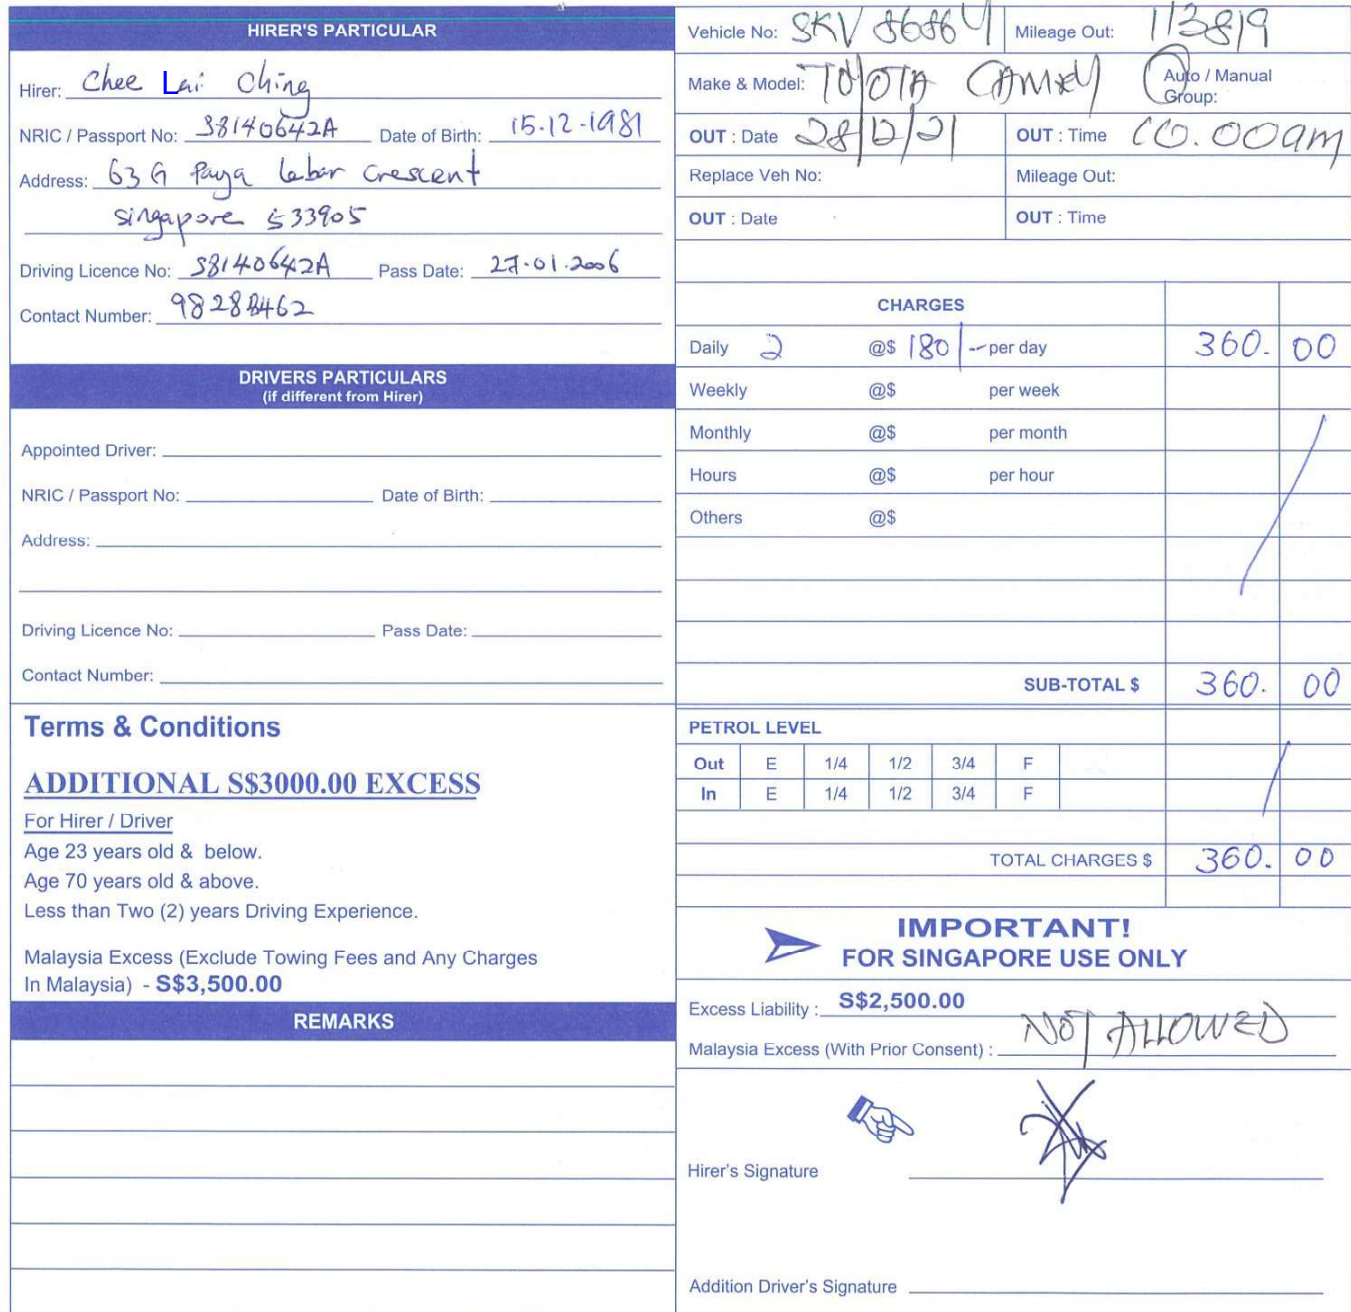 HIRER'S PARTICULAR
Hirer: Chee Lai Ching
NRIC / Passport No: S8140642A Date of Birth: 15.12.1981
Address: 63 G Paya Lebar Crescent
Singapore 533905
Driving Licence No: S8140642A Pass Date: 27.01.2006
Contact Number: 98288462
DRIVERS PARTICULARS
(if different from Hirer)
Appointed Driver:
NRIC / Passport No: Date of Birth:
Address:
Driving Licence No: Pass Date:
Contact Number:
Terms & Conditions
ADDITIONAL S$3000.00 EXCESS
For Hirer / Driver
Age 23 years old & below.
Age 70 years old & above.
Less than Two (2) years Driving Experience.
Malaysia Excess (Exclude Towing Fees and Any Charges
In Malaysia) - S$3,500.00
REMARKS
Vehicle No: SKV 8686Y Mileage Out: 113819
Make & Model: TOYOTA CAMRY Auto / Manual
Group:
OUT : Date 28/12/21 OUT : Time 10.00am
Replace Veh No: Mileage Out:
OUT : Date OUT : Time
CHARGES
Daily 2 @$ 180/- per day 360. 00
Weekly @$ per week
Monthly @$ per month
Hours @$ per hour
Others @$
SUB-TOTAL $ 360. 00
PETROL LEVEL
Out E 1/4 1/2 3/4 F
In E 1/4 1/2 3/4 F
TOTAL CHARGES $ 360. 00
IMPORTANT!
FOR SINGAPORE USE ONLY
Excess Liability : S$2,500.00
Malaysia Excess (With Prior Consent) : NOT ALLOWED
Hirer's Signature
Addition Driver's Signature